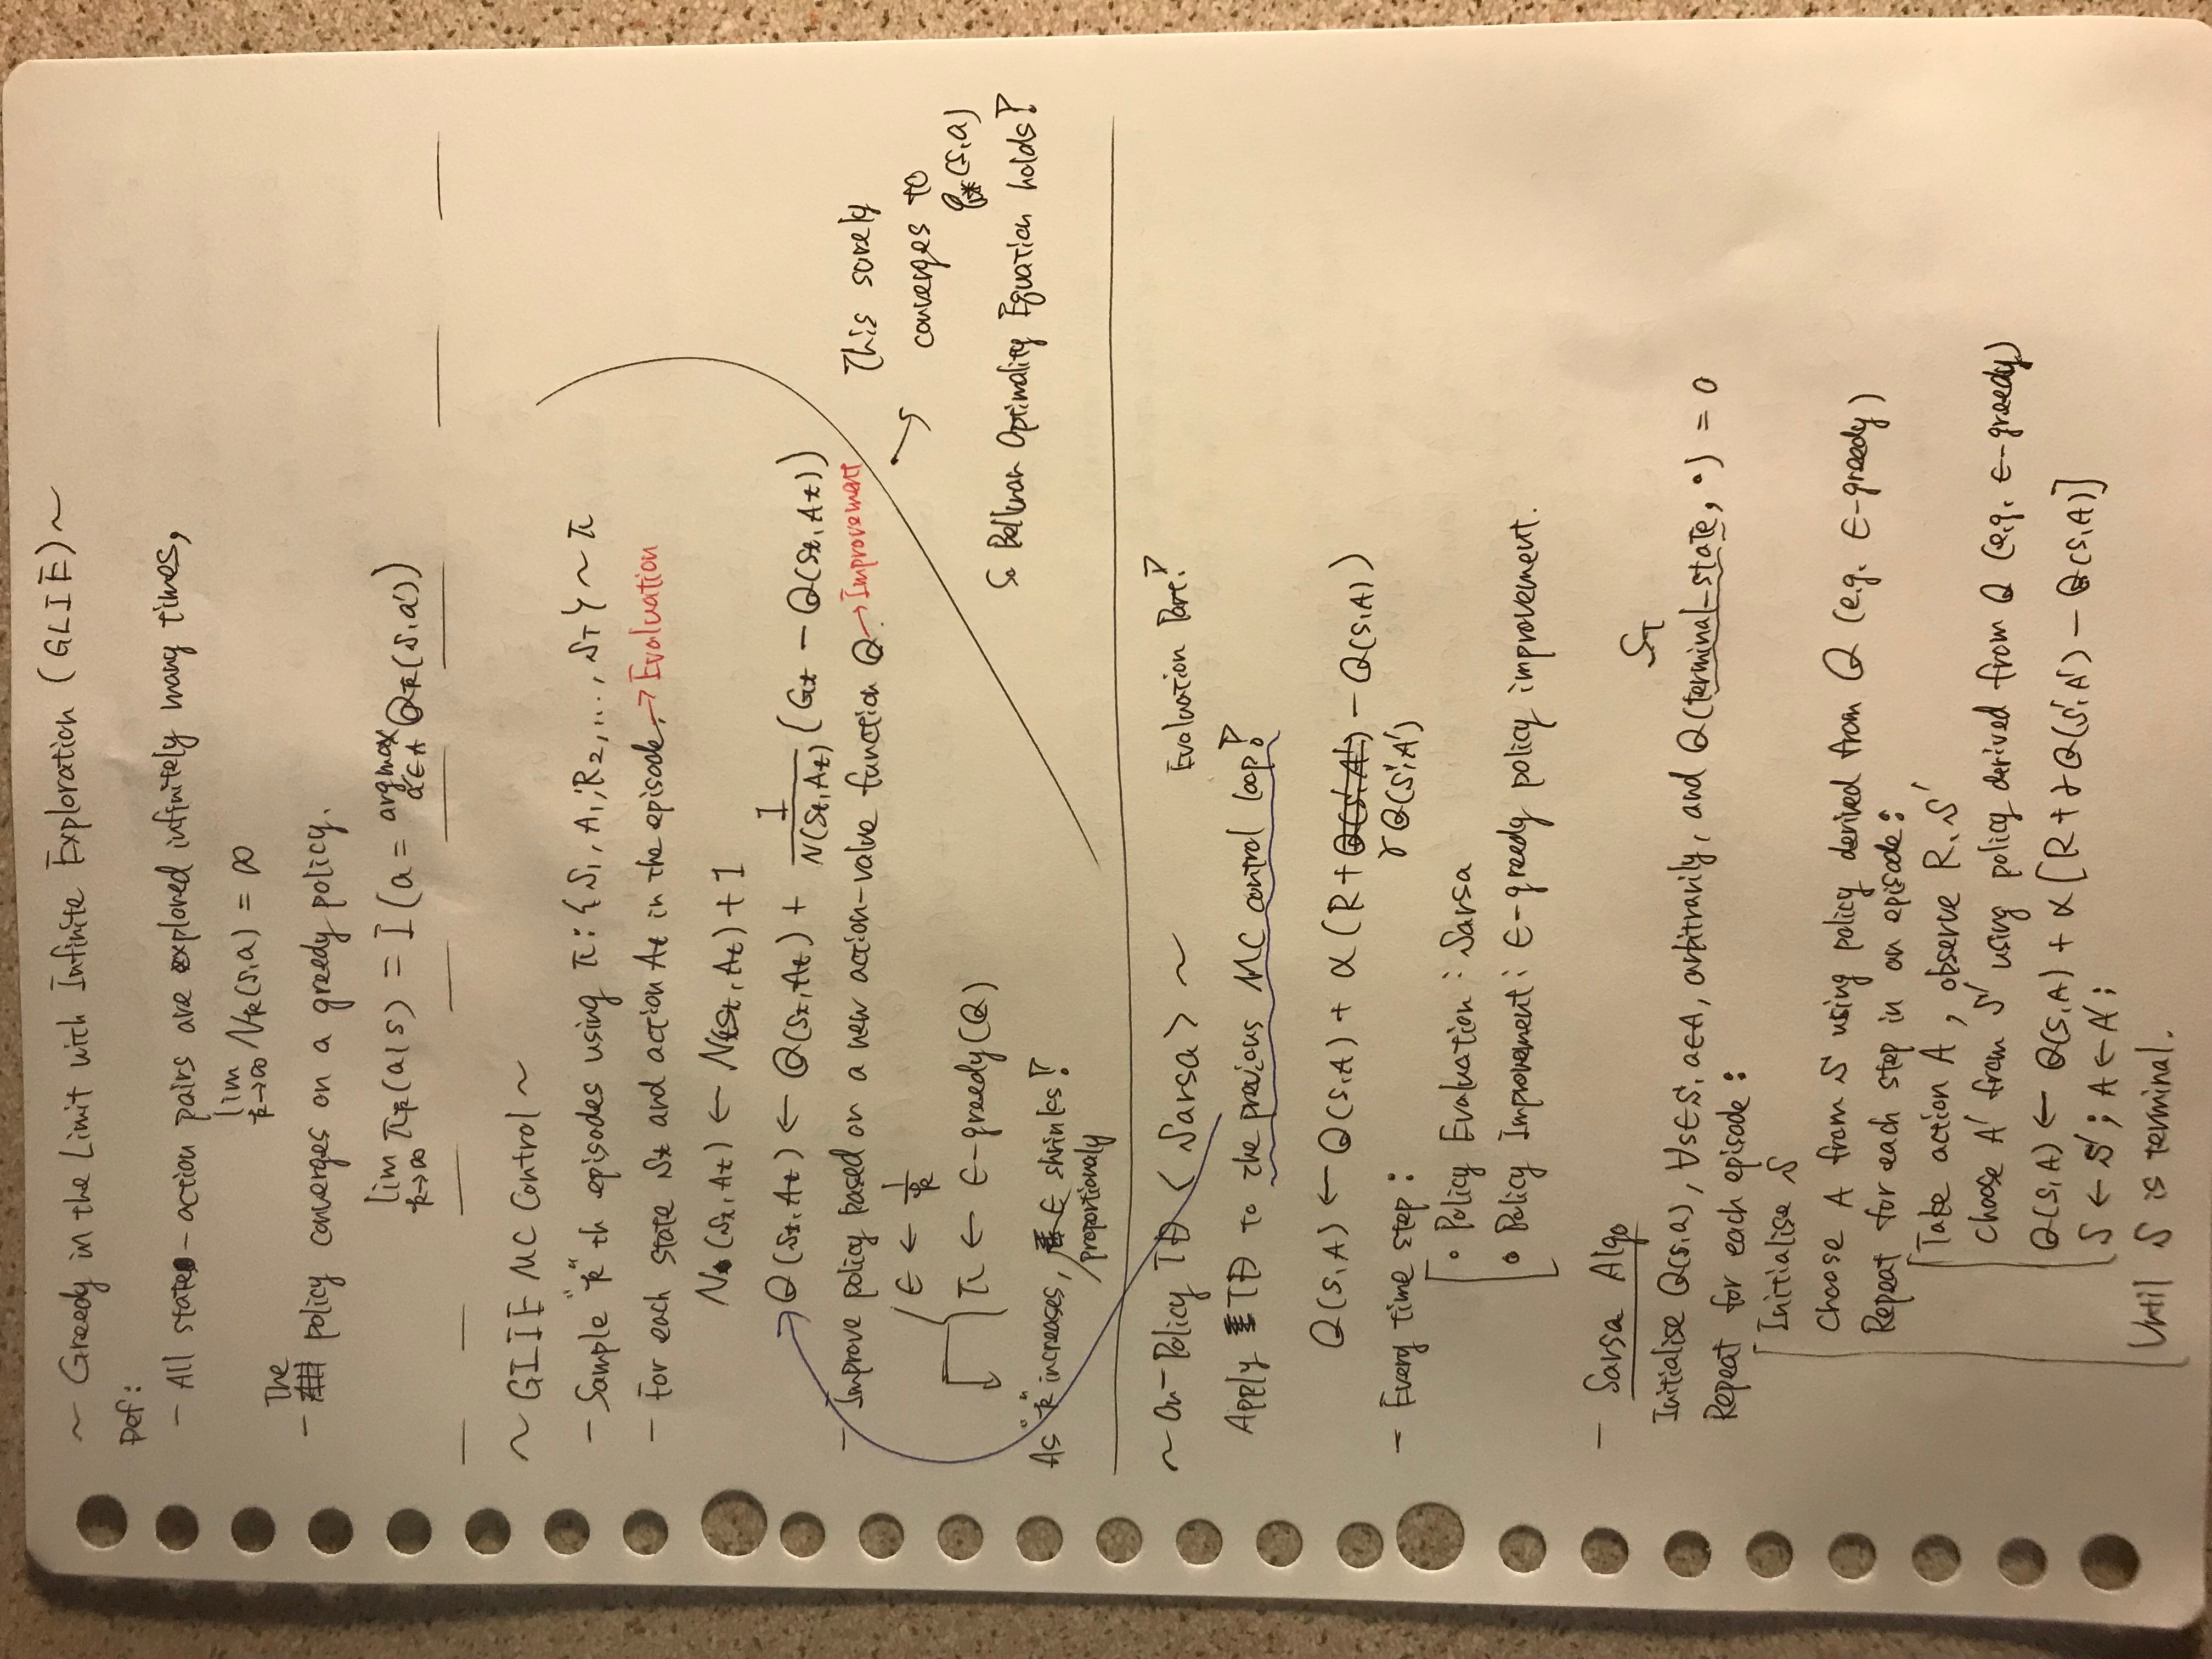 ~ Greedy in the Limit with Infinite Exploration (GLIE) ~
Def:
- All state-action pairs are explored infinitely many times,
lim k→∞ Nk(s,a) = ∞
- The policy converges on a greedy policy.
lim k→∞ πk(a|s) = I(a = argmax a'∈A Qk(s,a'))
~ GLIE MC Control ~
- Sample "k"th episodes using π: {S1, A1, R2, ..., ST} ~ π
- For each state St and action At in the episode, → Evaluation
N(St, At) ← N(St, At) + 1
Q(St, At) ← Q(St, At) + 1/N(St, At) (Gt - Q(St, At))
- Improve policy based on a new action-value function Q. → Improvement
ϵ ← 1/k
π ← ϵ-greedy(Q)
As "k" increases, ϵ shrinks!
proportionaly
This surely
converges to
q*(s,a)
So Bellman Optimality Equation holds!
~ On-Policy TD < Sarsa > ~
Evaluation Part!
Apply TD to the previous MC control loop!
Q(S,A) ← Q(S,A) + α (R + γQ(S',A') - Q(S,A))
- Every time step:
• Policy Evaluation : Sarsa
• Policy Improvement : ϵ-greedy policy improvement.
- Sarsa Algo
ST
Initialise Q(s,a), ∀s∈S, a∈A, arbitrarily, and Q(terminal-state, •) = 0
Repeat for each episode:
Initialise S
Choose A from S using policy derived from Q (e.g. ϵ-greedy)
Repeat for each step in an episode:
Take action A, observe R, S'
Choose A' from S' using policy derived from Q (e.g. ϵ-greedy)
Q(S,A) ← Q(S,A) + α[R + γQ(S',A') - Q(S,A)]
S ← S'; A ← A';
Until S is terminal.